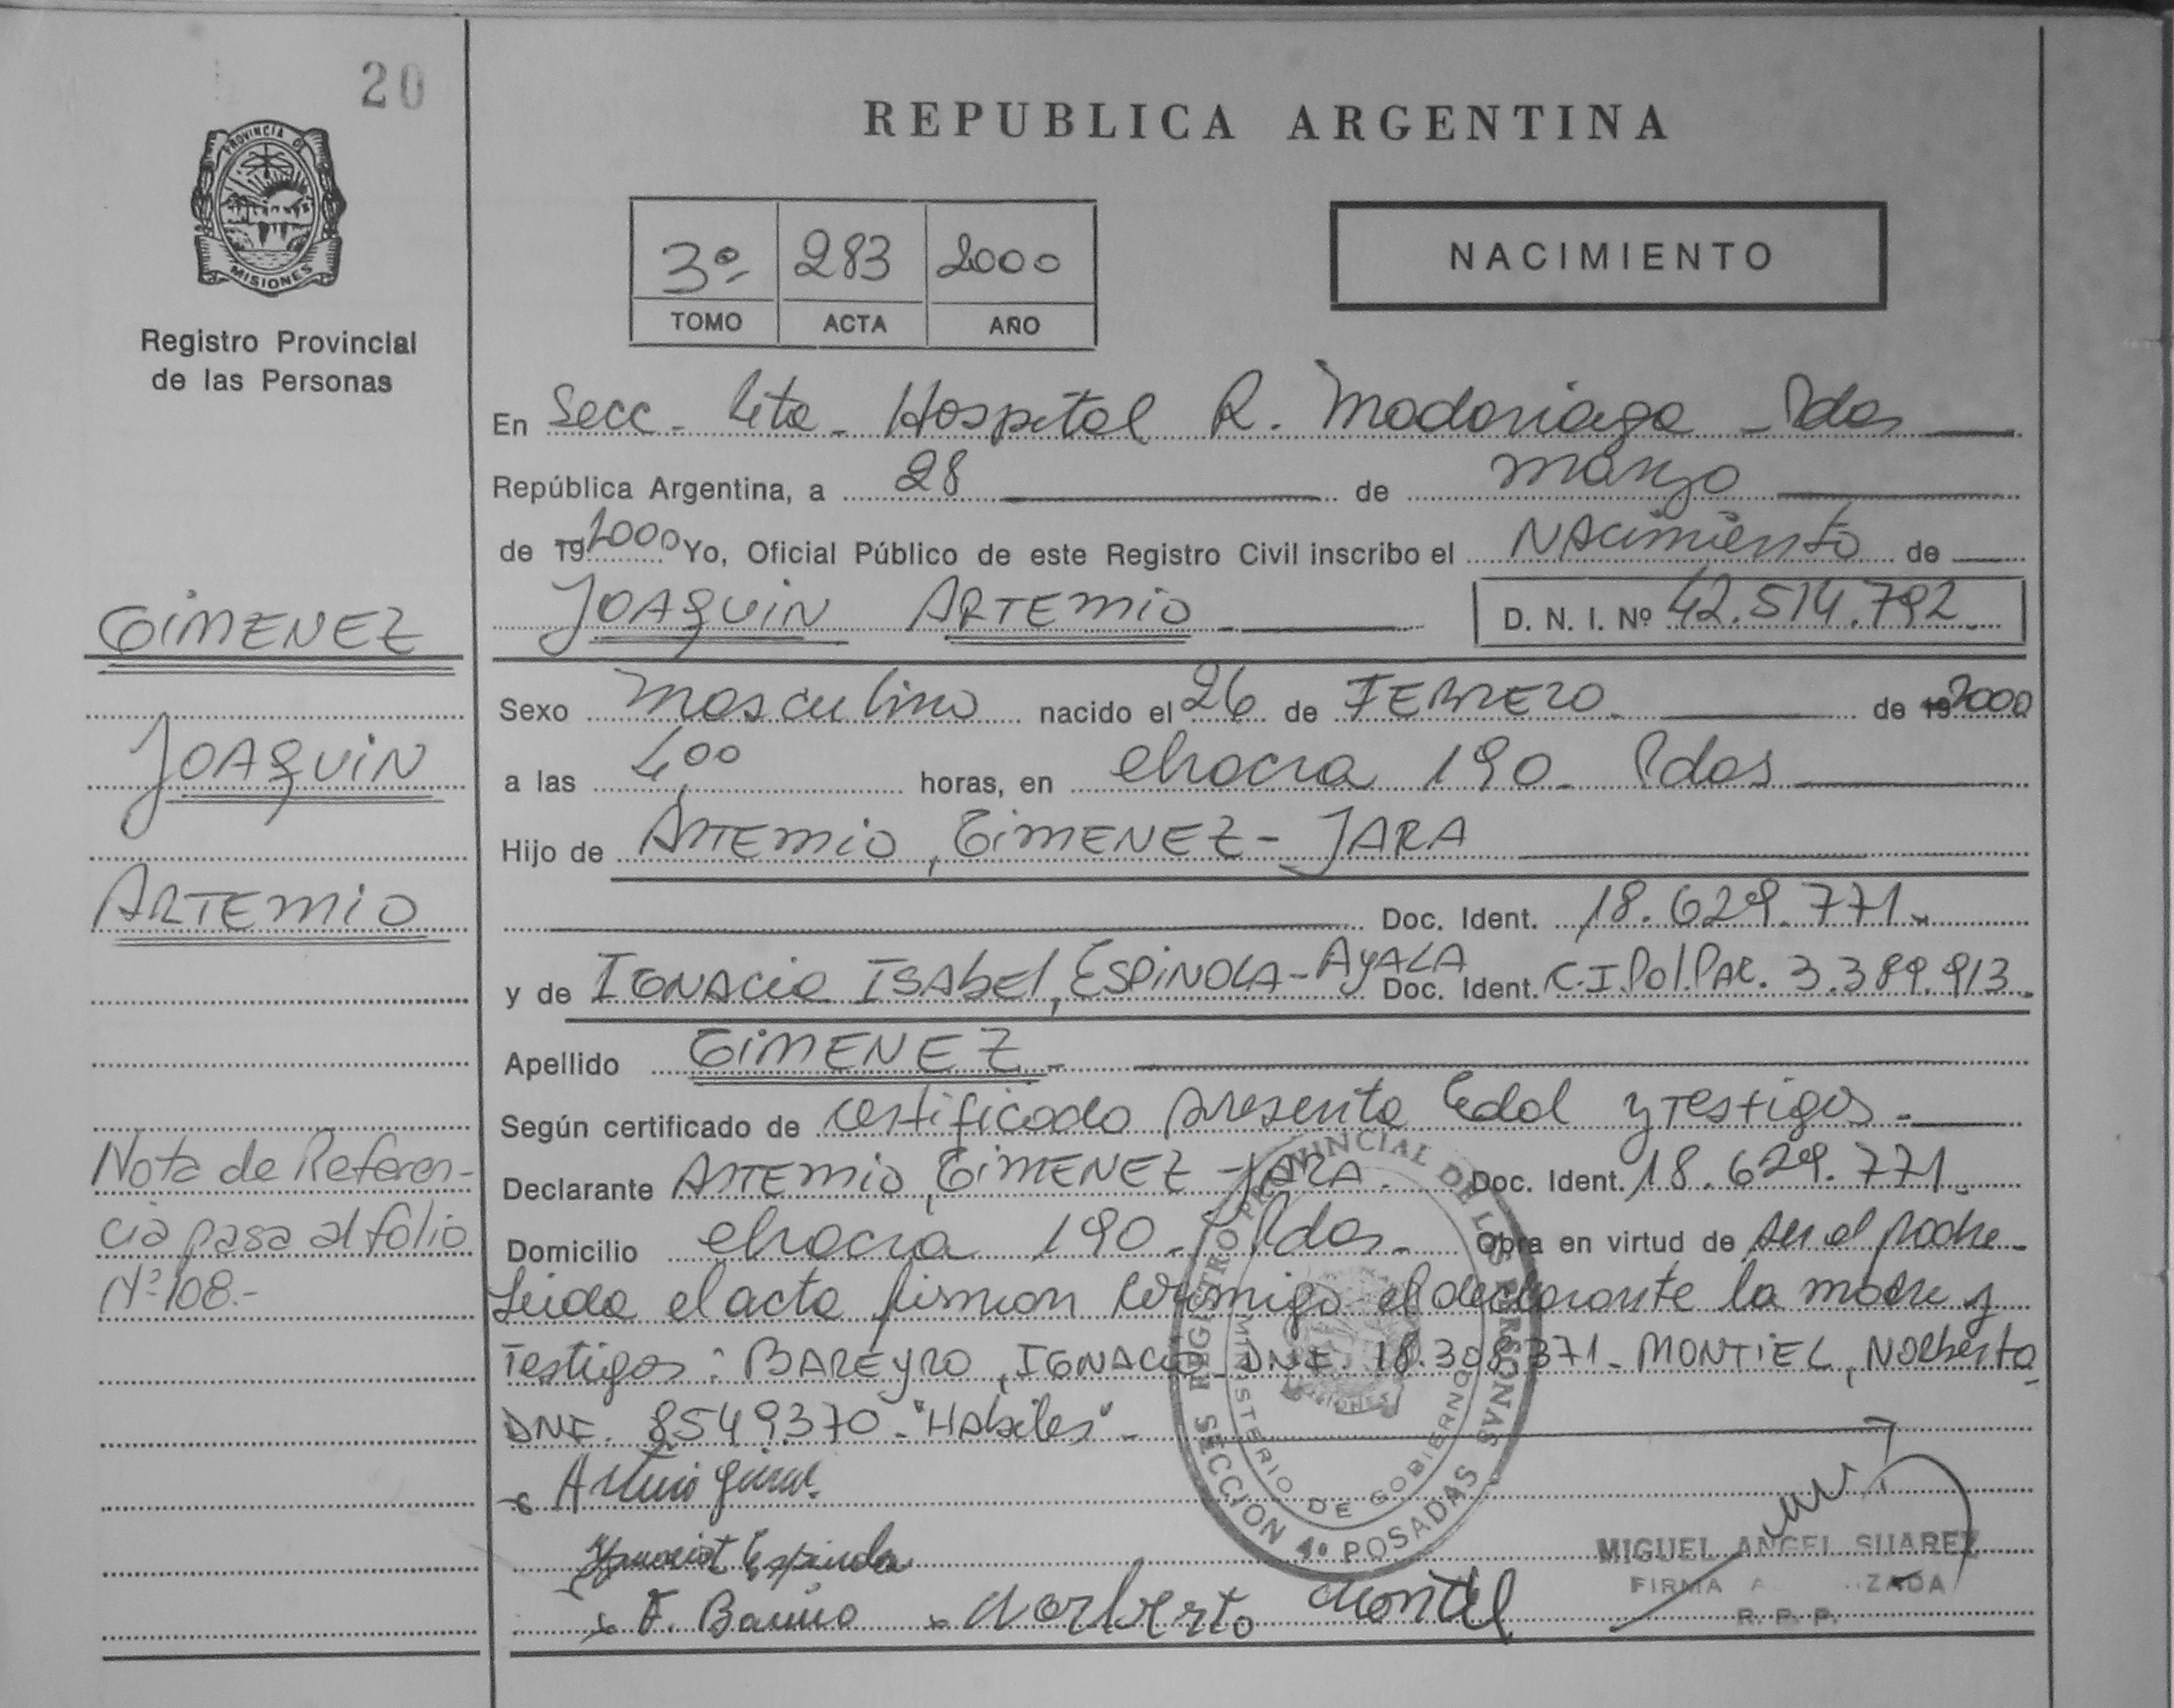 20
PROVINCIA DE
MISIONES
Registro Provincial
de las Personas
GIMENEZ
JOAQUIN
ARTEMIO
Nota de Referen-
cia pasa al folio
Nº 108.-
REPUBLICA ARGENTINA
3º 283 2000
TOMO ACTA AÑO
NACIMIENTO
En Secc. 4ta. Hospital R. Madariaga - Pdas
República Argentina, a 28 de marzo
de 19 2000 Yo, Oficial Público de este Registro Civil inscribo el NAcimiento de
JOAQUIN ARTEMIO D. N. I. Nº 42.514.792.
Sexo masculino nacido el 26 de FEBRERO. de 19 2000
a las 4,00 horas, en chacra 190. Pdas
Hijo de ARTEMIO, GIMENEZ - JARA
Doc. Ident. 18.629.771.
y de IGNACIA ISAbEl, ESPINOLA - AyALA Doc. Ident. C.I.Pol.PAR. 3.389.913.
Apellido GIMENEZ.
Según certificado de certificado presenta Edad y Testigos.
Declarante ARTEMIO, GIMENEZ - JARA. Doc. Ident. 18.629.771.
Domicilio chacra 190. Pdas. Obra en virtud de ser el padre.
Leida el acta firman conmigo el declarante la madre y
Testigos: BAREyRO, IGNACIO DNI. 18.308.371. MONTIEL, NORberto
DNI. 8549.370. "HAbiles".
REGISTRO PROVINCIAL DE LAS PERSONAS
MINISTERIO DE GOBIERNO
MISIONES
SECCION 4º POSADAS
Espinola
Norberto Montiel
MIGUEL ANGEL SUAREZ
FIRMA
R. P. P.